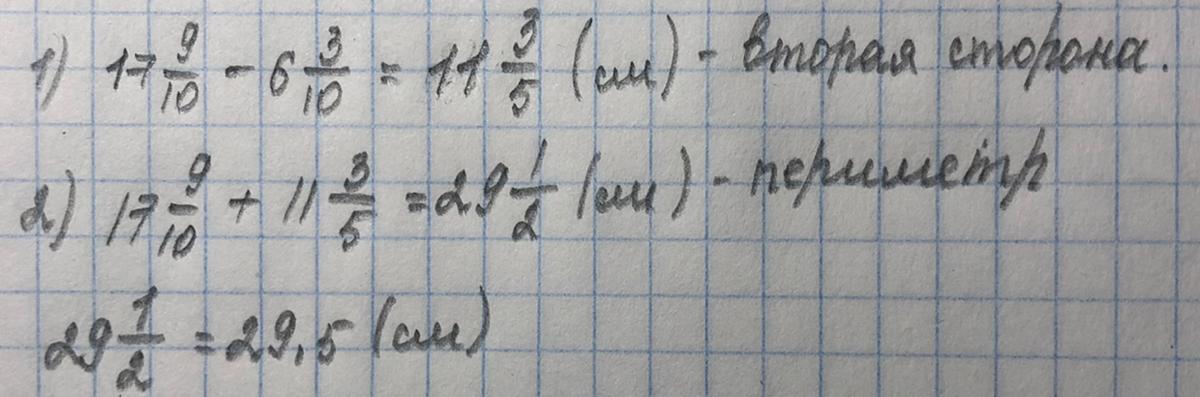 1) 17 9/10 - 6 3/10 = 11 3/5 (см) - вторая сторона.
2) 17 9/10 + 11 3/5 = 29 1/2 (см) - периметр
29 1/2 = 29,5 (см)